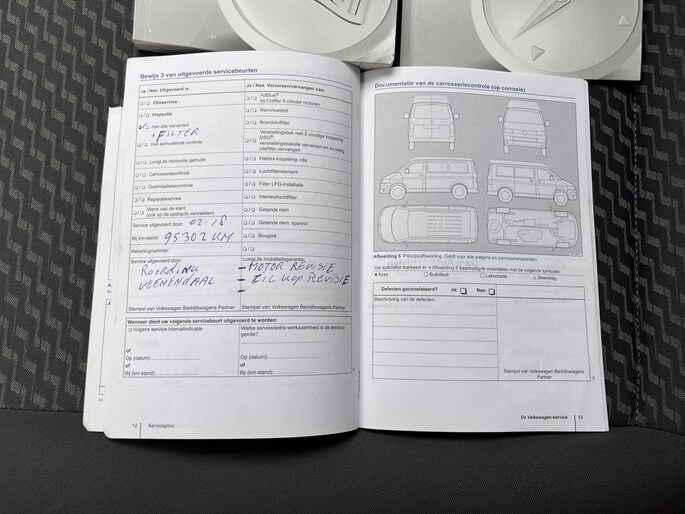 Bewijs 3 van uitgevoerde servicebeurten
Ja / Nee. Uitgevoerd is:
Olieservice
Inspectie
met olie verversen
+ FILTER
met aanvullende controle
LongLife motorolie gebruikt
Carrosseriecontrole
Gasinstallatiecontrole
Reparatieadvies
Wens van de klant
(ook op de opdracht vermelden)
Service uitgevoerd door: 02-18
Bij km-stand: 95302 KM
Rekeningnummer:
Service uitgevoerd door:
ROORDINK
VEENENDAAL
Stempel van Volkswagen Bedrijfswagens Partner
Ja / Nee. Verversen/vervangen van:
AdBlue®
bij Crafter 5-cilinder motoren
Remvloeistof
Brandstoffilter
Versnellingsbak met 2-voudige koppeling
DSG®:
versnellingsbakolie verversen en zo nodig
oliefilter vervangen
Haldex-koppeling: olie
Luchtfilterelement
Filter LPG-installatie
Interieurluchtfilter
Getande riem
Getande riem: spanrol
Bougies
LongLife mobiliteitsgarantie:
- MOTOR REVISIE
- CIL KOP REVISIE
-
Stempel van Volkswagen Bedrijfswagens Partner
Wanneer dient uw volgende servicebeurt uitgevoerd te worden:
Volgens service-intervalindicatie
of
Op (datum):
of
Bij (km-stand):
Welke service/extra werkzaamheid is de eerstvol-
gende?
Op (datum):
of
Bij (km-stand):
12 Serviceplan
Documentatie van de carrosseriecontrole (op corrosie)
Afbeelding 5 Principeafbeelding. Geldt voor alle wagens en carrosserievarianten.
Uw specialist markeert in ⇒ Afbeelding 5 beschadigde onderdelen met de volgende symbolen:
Kras Buil/deuk Lakschade Steenslag
Defecten geconstateerd? Ja: Nee:
Beschrijving van de defecten:
Stempel van Volkswagen Bedrijfswagens
Partner
De Volkswagen-service 13